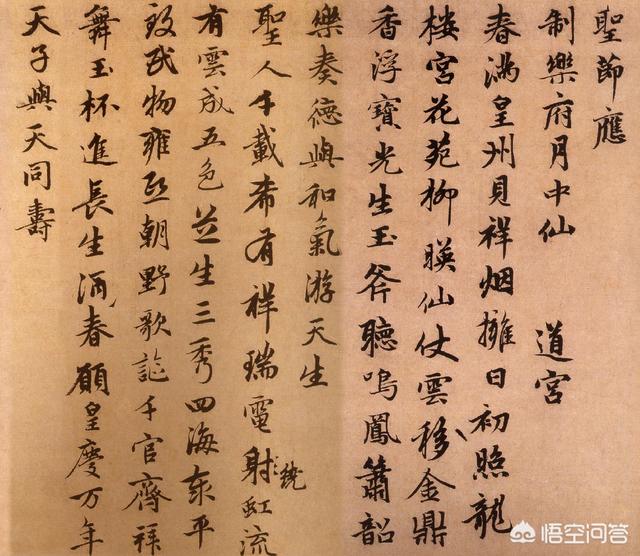 聖節應
制樂府月中仙 道宮
春滿皇州見祥烟擁日初照龍
樓宮花苑柳暎仙仗雲移金鼎
香浮寶光生玉斧聽鳴鳳簫韶
樂奏德與和氣游天生
聖人千載希有祥瑞電繞虹流
有雲成五色芝生三秀四海泰平
致民物雍熙朝野歌謳千官齊拜
舞玉杯進長生酒春願皇慶万年
天子與天同壽
悟空问答